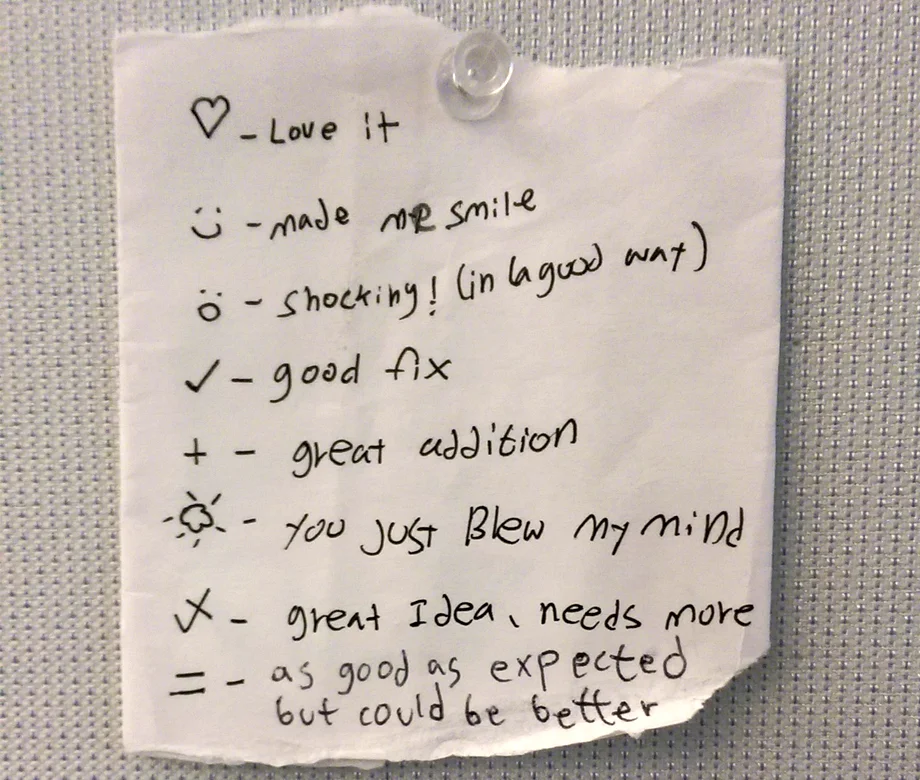 ♡ - Love it
ü - made me smile
ö - shocking! (in a good way)
✓ - good fix
+ - great addition
- You just Blew my mind
X - great Idea, needs more
= - as good as expected
but could be better